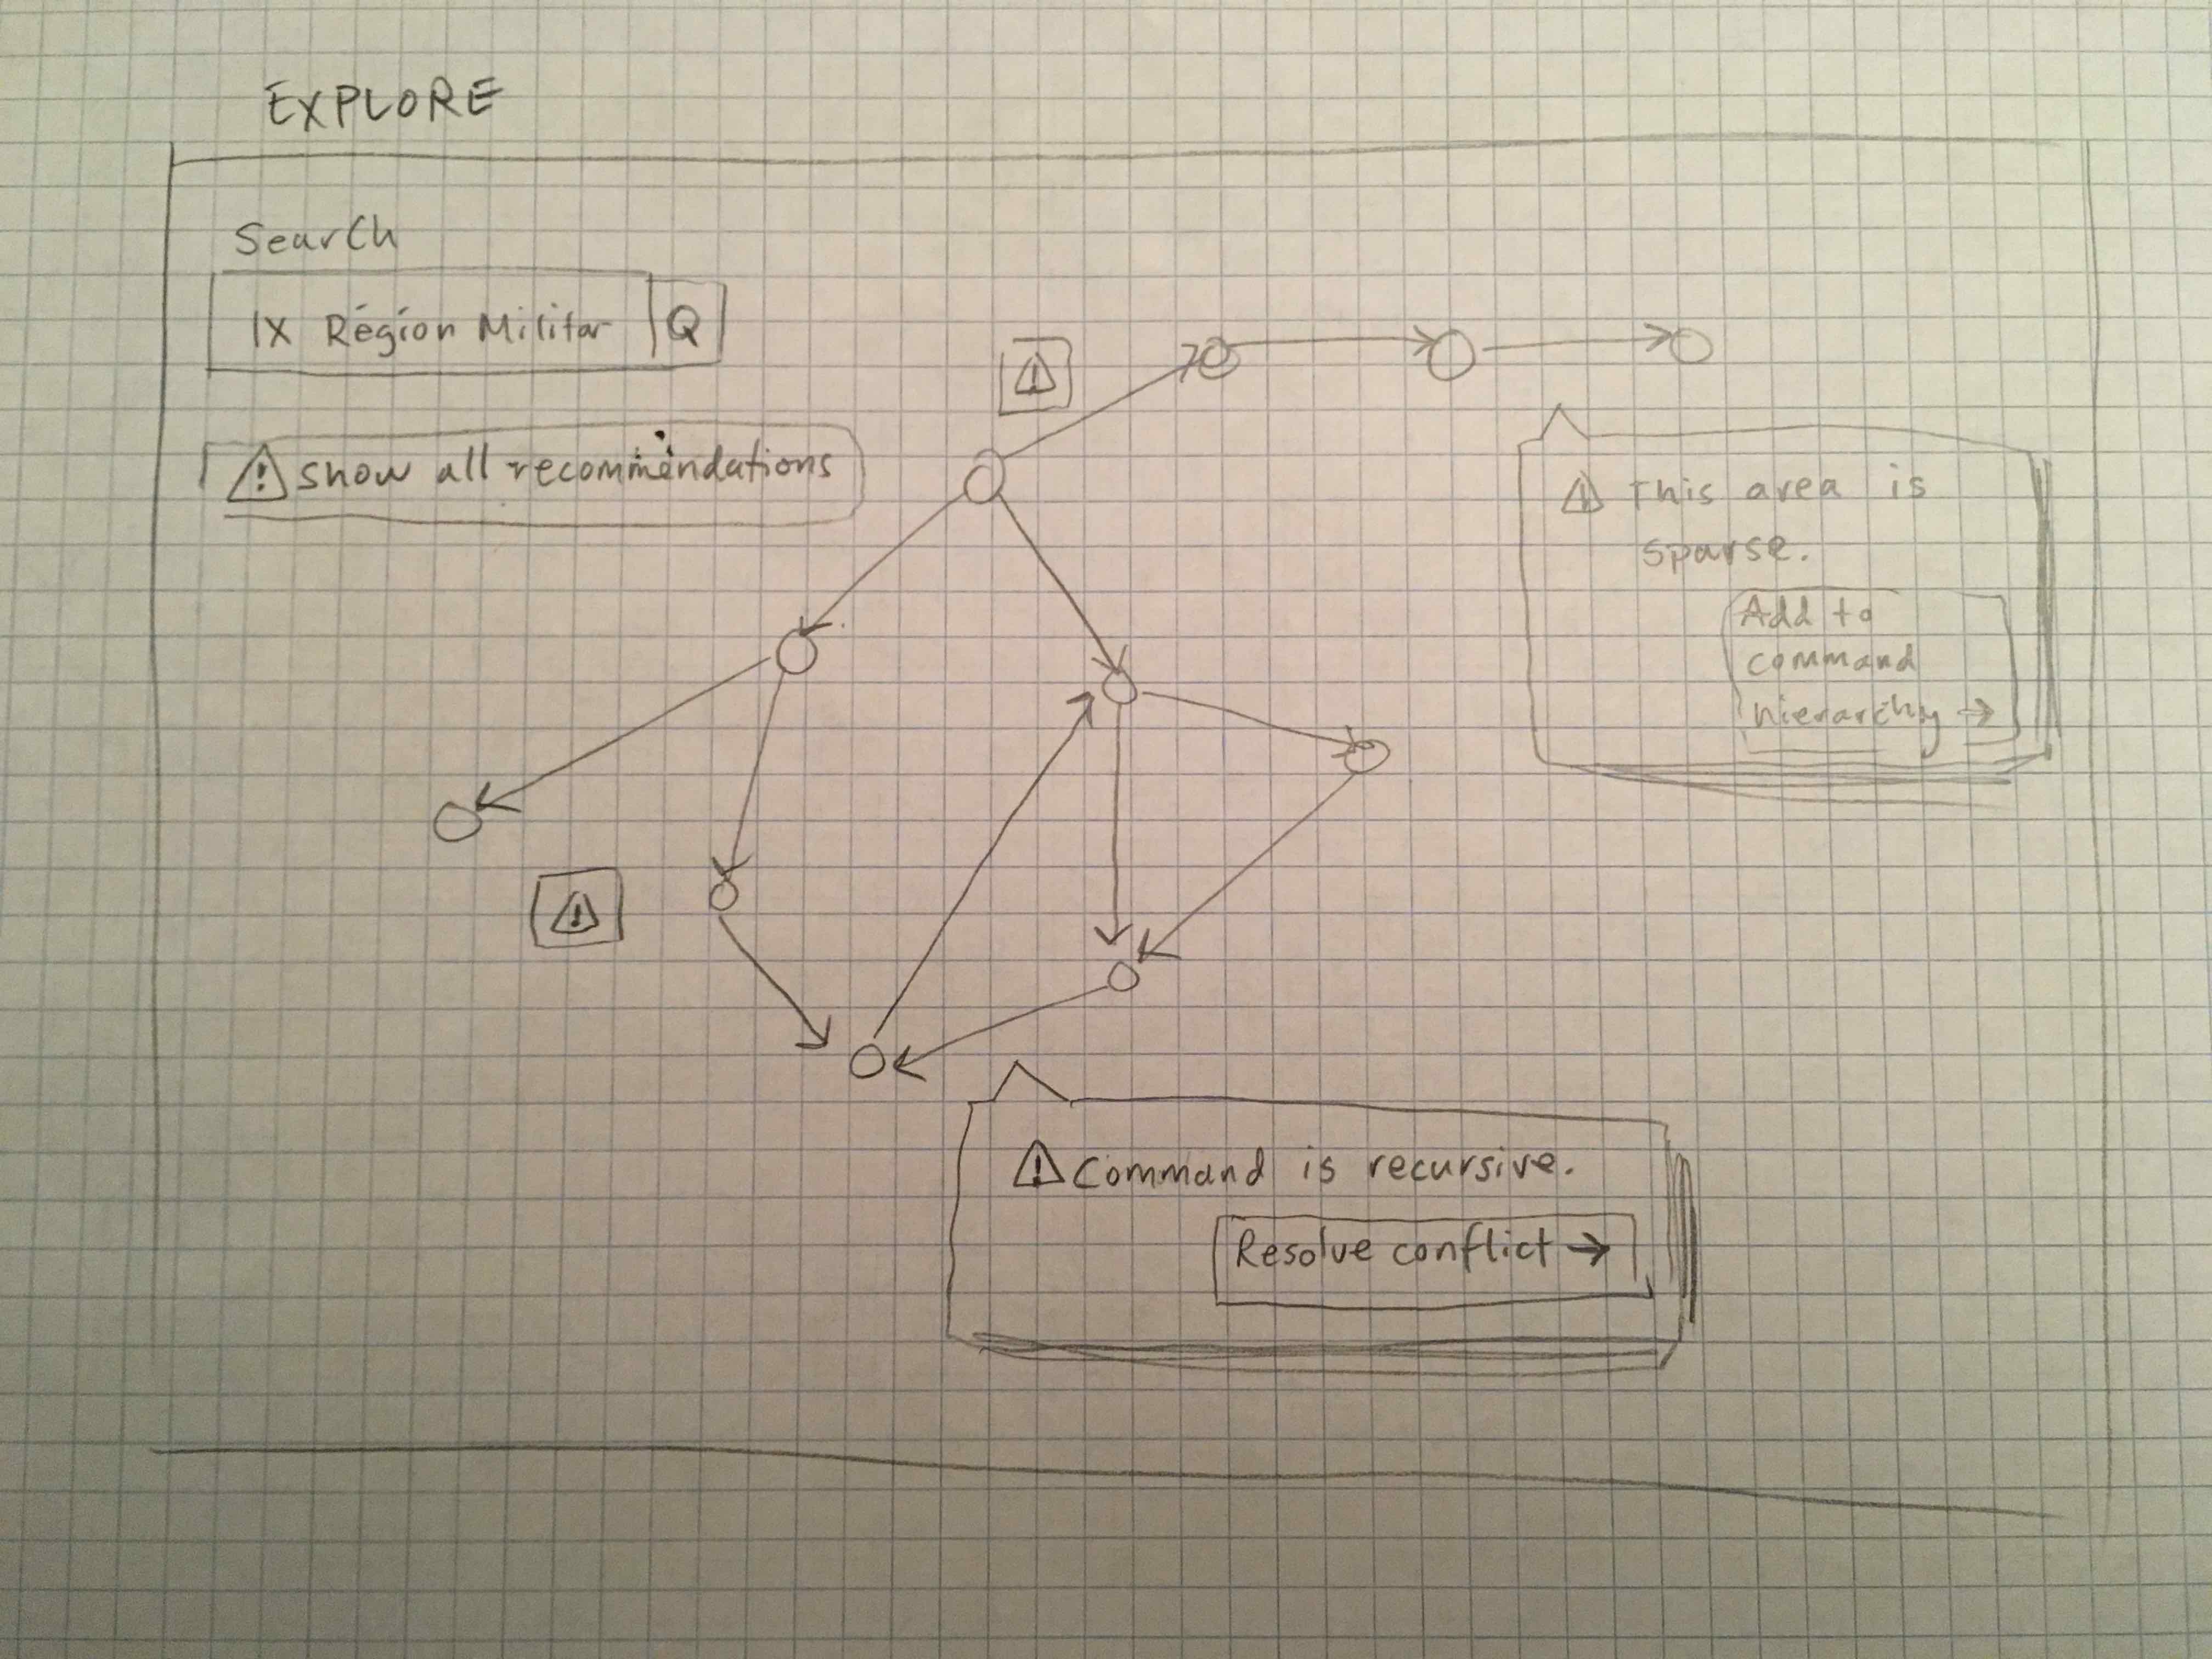 EXPLORE
Search
IX Région Militar
⚠ show all recommendations
⚠ This area is
sparse.
Add to
command
hierarchy →
⚠ Command is recursive.
Resolve conflict →